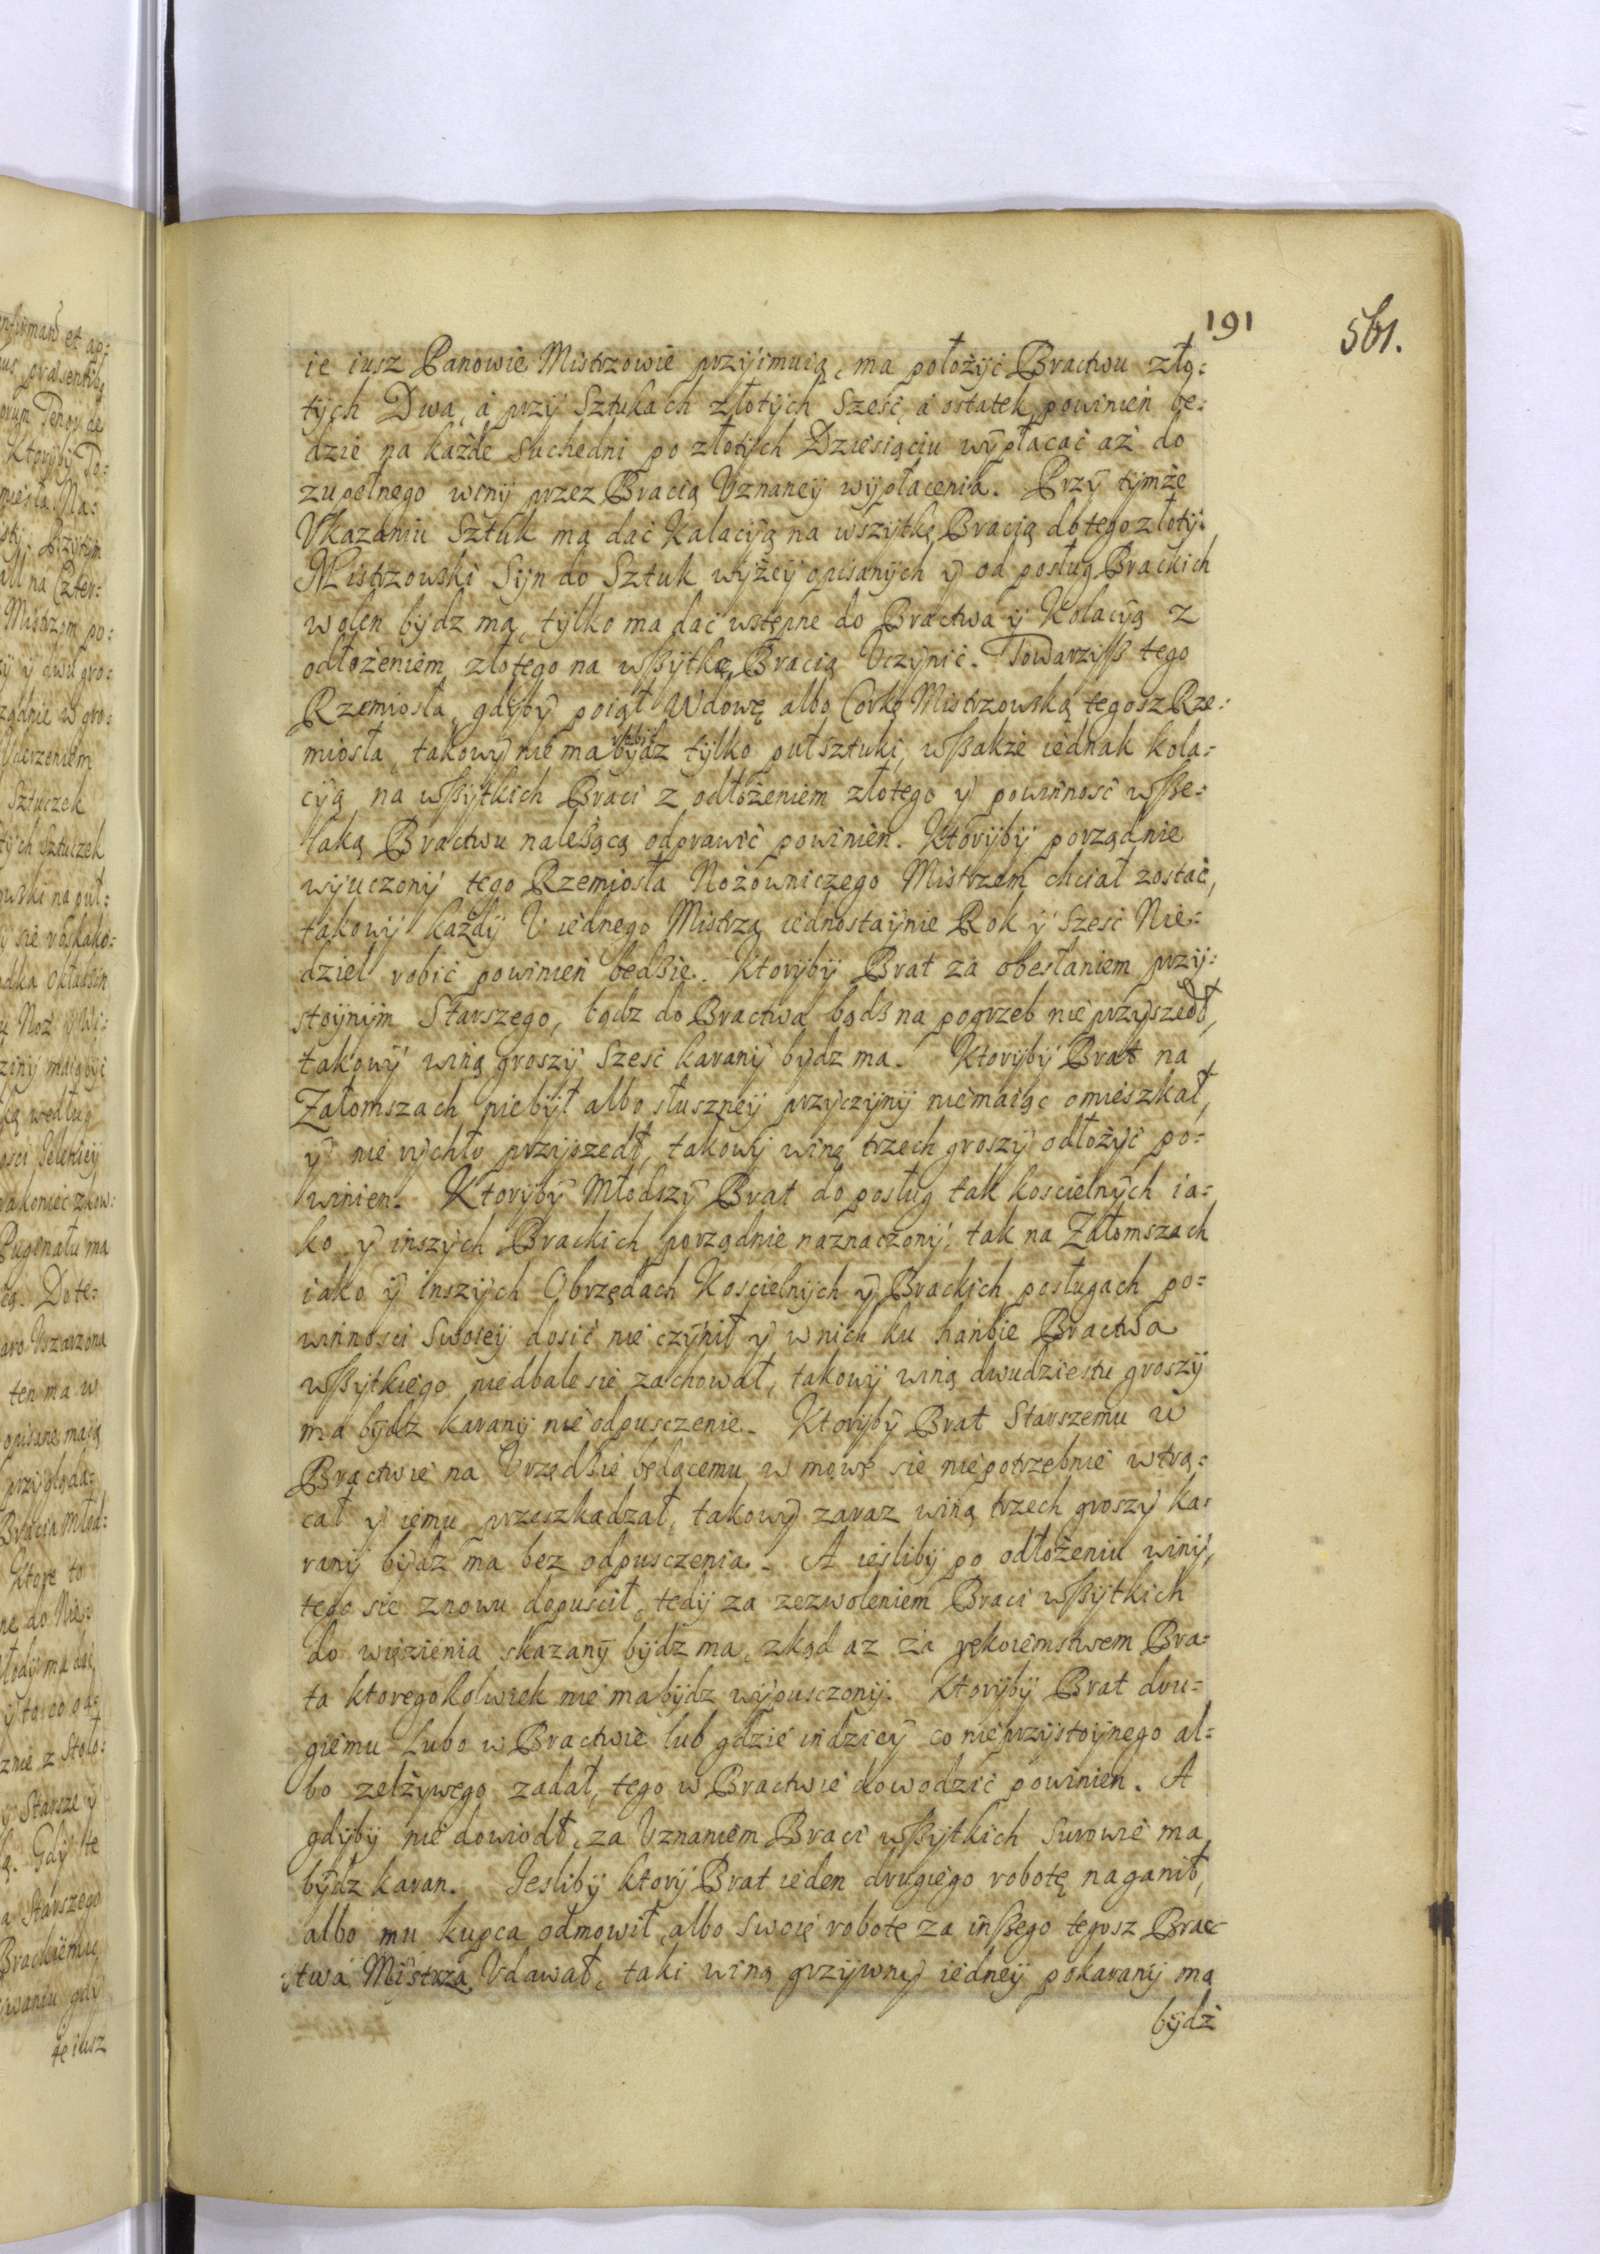 191
561.
ie iusz Panowie Mistrzowie przyimuią, ma położyć Bractwu zło-
tych Dwa, á przy Sztukach złotych Sześć, á ostatek powinien bę-
dzie na każde Suchedni po złotych Dziesiąciu wypłacać aż do
zupełnego winy przez Bracią Vznaney wypłacenia. Przy tymże
Vkazaniu Sztuk ma dać Kalacyą na wszytkę Bracią do tego złoty.
Mistrzowski Syn do Sztuk wyżey opisanych y od posług Brackich
wolen bydz ma, tylko ma dać wstępne do Bractwa y Kolacyą z
odłożeniem złotego na wszytkę Bracią Vczynić. Towarzisz tego
Rzemiosła, gdyby poiął Wdowę albo Corkę Mistrzowską tegosz Rze-
miosła, takowy nie ma bydz tylko puł sztuki, wszakże iednak kola-
cyą na wszytkich Braci z odłożeniem złotego y powinność wsze-
laką Bractwu należącą odprawić powinien. Ktoryby porządnie
wyuczony tego Rzemiosła Nożowniczego Mistrzem chciał zostać,
takowy każdy V iednego Mistrza iednostaynie Rok y Sześć Nie-
dziel robić powinien będzie. Ktoryby Brat za obesłaniem przy-
stoynym Starszego, bądz do Bractwa bądz na pogrzeb nie przyszedł,
takowy winą groszy Sześć karany bydz ma. Ktoryby Brat na
Załomszach nie był albo słuszney przyczyny niemaiąc omieszkał,
y nie rychło przyszedł, takowy winę trzech groszy odłożyć po-
winien. Ktoryby Młodszy Brat do posług tak koscielnych ia-
ko y inszych Brackich porządnie naznaczony, tak na Załomszach
iako y inszych Obrzędach Koscielnych y Brackich posługach po-
winności Swoiey dosić nie czynił y w nich ku hańbie Bractwa
wszytkiego niedbale sie zachował, takowy winą dwudziestu groszy
ma bydz karany nie odpusczenie. Ktoryby Brat Starszemu w
Bractwie na Vrzędzie będącemu w mowę sie niepotrzebnie wtrą-
cał y iemu przeszkadzał, takowy zaraz winą trzech groszy ka-
rany bydz ma bez odpusczenia. A ieśliby po odłożeniu winy,
tego sie znowu dopuscił, tedy za zezwoleniem Braci wszytkich
do więzienia skazany bydz ma, zkąd az za rękoiemstwem Bra-
ta ktoregokolwiek nie ma bydz wypusczony. Ktoryby Brat dru-
giemu Lubo w Bractwie lub gdzie indziey co nieprzystoynego al-
bo zelżywego zadał, tego w Bractwie dowodzić powinien. A
gdyby nie dowiodł, za Vznaniem Braci wszytkich surowie ma
bydz karan. Iesliby ktory Brat ieden drugiego robotę naganił,
albo mu kupca odmowił, albo swoię robotę za inszego tegosz Brac-
twa Mistrza Vdawał, taki winą grzywny iedney pokarany ma
bydź